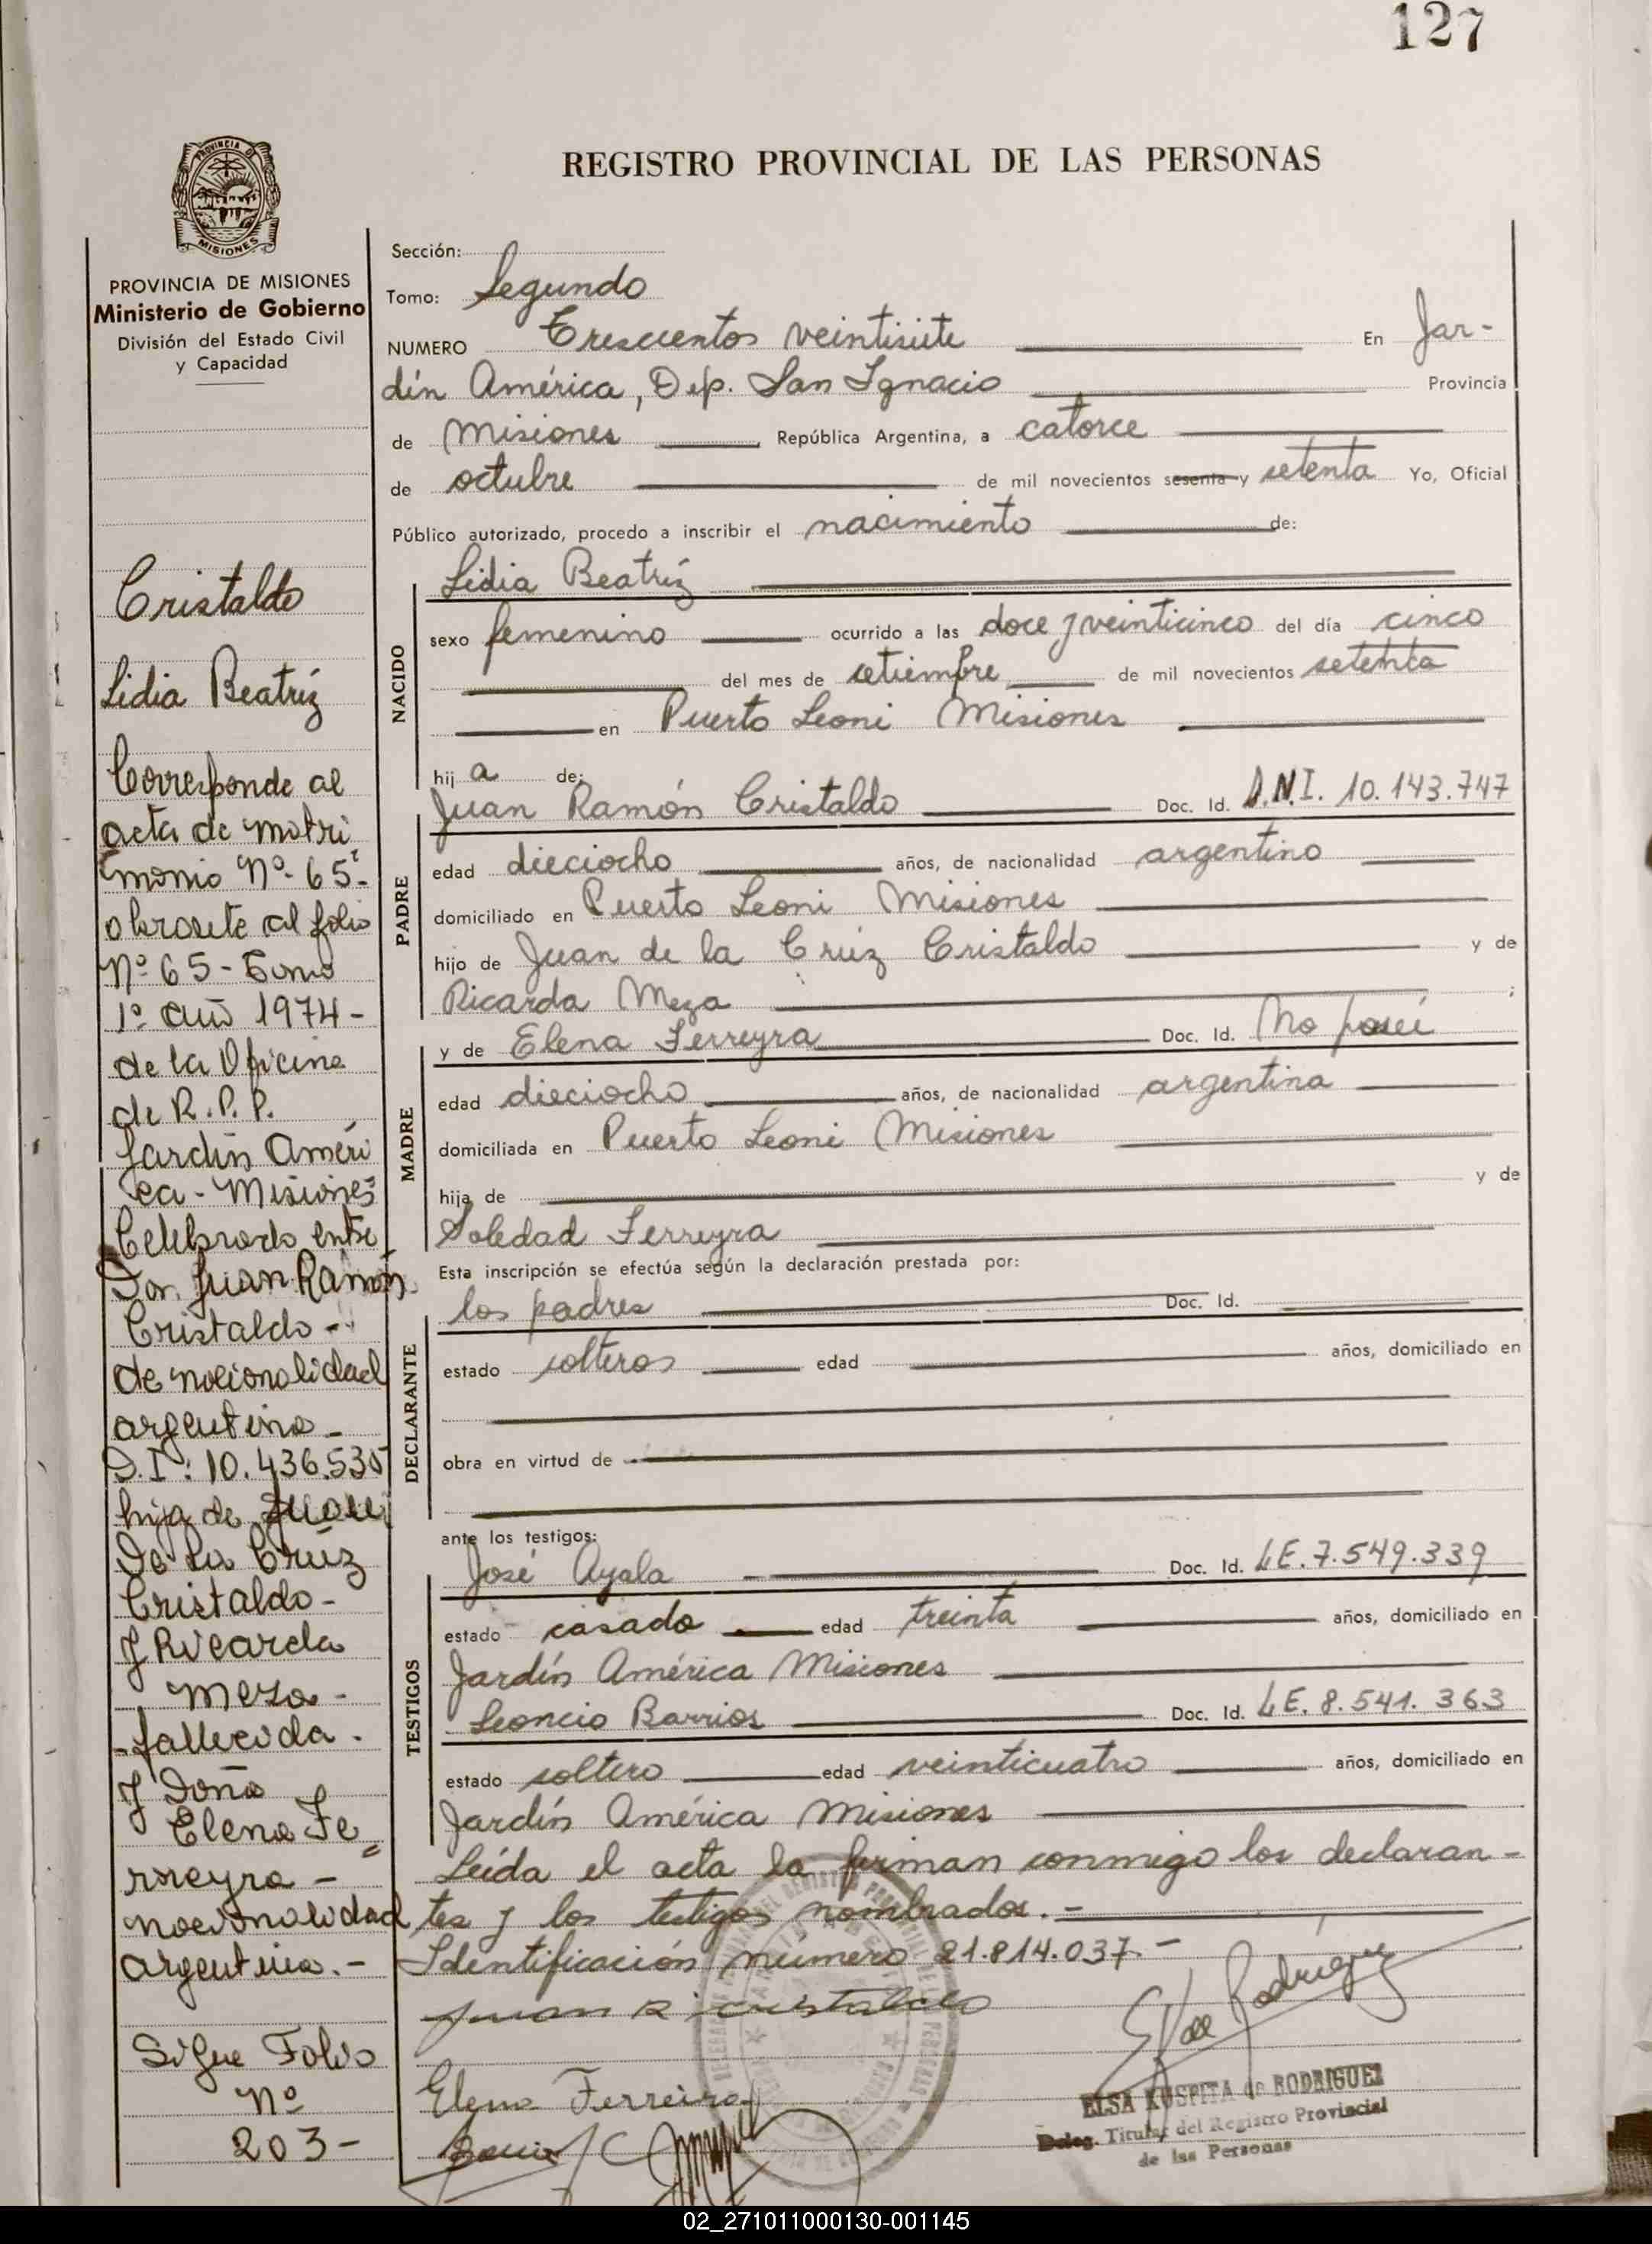 127
PROVINCIA DE
MISIONES
REGISTRO PROVINCIAL DE LAS PERSONAS
PROVINCIA DE MISIONES
Ministerio de Gobierno
División del Estado Civil
y Capacidad
Cristaldo
Lidia Beatríz
Corresponde al
acta de matri
monio Nº 65-
obrante al folio
Nº 65 - Tomo
1º año 1974 -
de la Oficina
de R.P.P.
Jardín Améri
ca - Misiones
Celebrado entre
Don Juan Ramón
Cristaldo -
de nacionalidad
argentino -
D.I: 10.436.535
hijo de Juan
De La Crúz
Cristaldo -
y Ricarda
Meza -
- fallecida.
y Doña
Elena Fe
rreyra -
nacionalidad
argentina.-
Sigue Folio
Nº
203-
Sección:
Tomo: Segundo
NUMERO Trescientos veintisiete En Jar-
dín América, Dep. San Ignacio Provincia
de Misiones República Argentina, a catorce
de octubre de mil novecientos sesenta y setenta Yo, Oficial
Público autorizado, procedo a inscribir el nacimiento de:
Lidia Beatríz
NACIDO
sexo femenino ocurrido a las doce y veinticinco del día cinco
del mes de setiembre de mil novecientos setenta
en Puerto Leoni Misiones
hij a de:
Juan Ramón Cristaldo Doc. Id. D.N.I. 10.143.747
PADRE
edad dieciocho años, de nacionalidad argentino
domiciliado en Puerto Leoni Misiones
hijo de Juan de la Crúz Cristaldo y de
Ricarda Meza ;
y de Elena Ferreyra Doc. Id. No posei
MADRE
edad dieciocho años, de nacionalidad argentina
domiciliada en Puerto Leoni Misiones
hija de y de
Soledad Ferreyra
Esta inscripción se efectúa según la declaración prestada por:
los padres Doc. Id.
DECLARANTE
estado solteros edad años, domiciliado en
obra en virtud de
ante los testigos:
José Ayala Doc. Id. LE.7.549.339
TESTIGOS
estado casado edad treinta años, domiciliado en
Jardín América Misiones
Leoncio Barrios Doc. Id. LE. 8.541.363
estado soltero edad veinticuatro años, domiciliado en
Jardín América Misiones
Leída el acta la firman conmigo los declaran-
tes y los testigos nombrados.-
Identificación número 21.814.037.-
Juan R Cristaldo
Elsa Rodriguez
Elena Ferreira
ELSA KUSPITA de RODRIGUEZ
Deleg. Titular del Registro Provincial
de las Personas
02_271011000130-001145